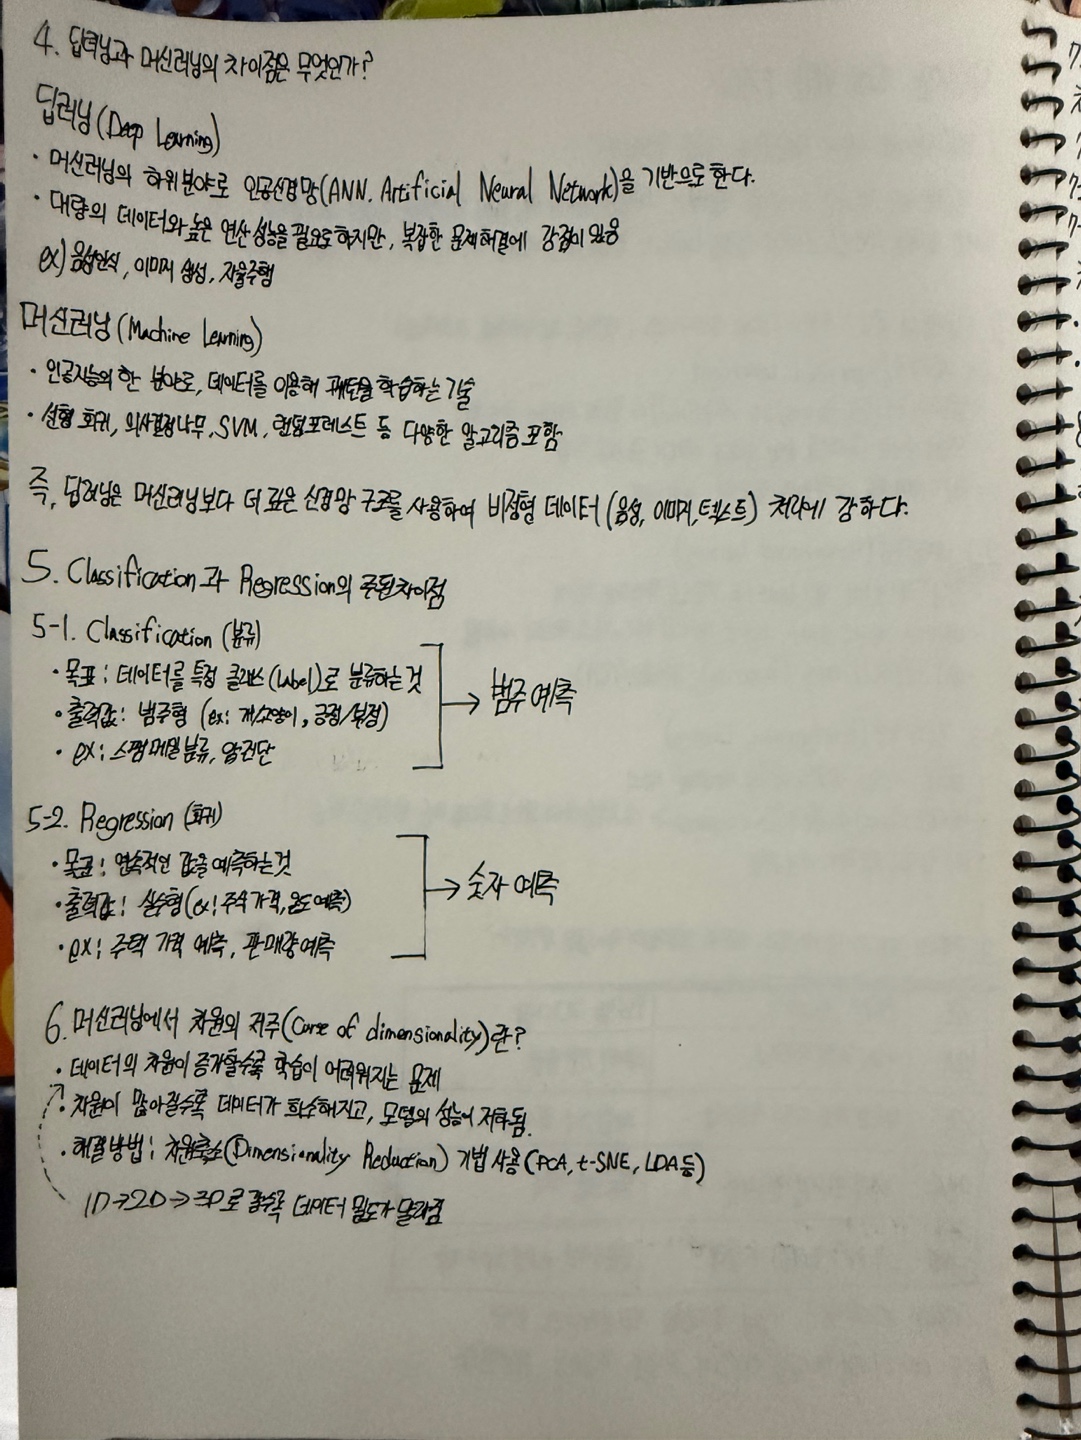 4. 딥러닝과 머신러닝의 차이점은 무엇인가?
딥러닝(Deep Learning)
· 머신러닝의 하위분야로 인공신경망(ANN. Artificial Neural Network)을 기반으로 한다.
· 대량의 데이터와 높은 연산성능을 필요로 하지만, 복잡한 문제해결에 강점이 있음
ex) 음성인식, 이미지 생성, 자율주행
머신러닝(Machine Learning)
· 인공지능의 한 분야로, 데이터를 이용해 패턴을 학습하는 기술
· 선형 회귀, 의사결정나무, SVM, 랜덤포레스트 등 다양한 알고리즘 포함
즉, 딥러닝은 머신러닝보다 더 깊은 신경망 구조를 사용하여 비정형 데이터(음성, 이미지, 텍스트) 처리에 강하다.
5. Classification과 Regression의 주된차이점
5-1. Classification (분류)
· 목표 : 데이터를 특정 클래스(Label)로 분류하는 것
· 출력값 : 범주형 (ex: 개/고양이, 긍정/부정)
· ex : 스팸메일분류, 암진단
→ 범주 예측
5-2. Regression (회귀)
· 목표 : 연속적인 값을 예측하는것
· 출력값 : 실수형(ex: 주식가격, 온도예측)
· ex : 주택 가격 예측, 판매량예측
→ 숫자 예측
6. 머신러닝에서 차원의 저주(Curse of dimensionality)란?
· 데이터의 차원이 증가할수록 학습이 어려워지는 문제
· 차원이 많아질수록 데이터가 희소해지고, 모델의 성능이 저하됨.
· 해결방법 : 차원축소(Dimensionality Reduction) 기법 사용(PCA, t-SNE, LDA등)
1D→2D→3D로 갈수록 데이터 밀도가 달라짐